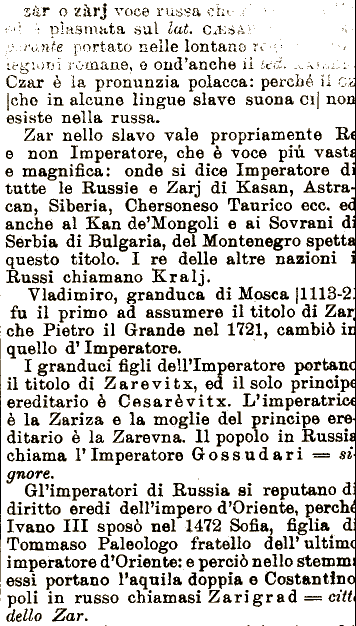 zàr o zàrj voce russa che
è plasmata sul lat. CÆSAR
portato nelle lontano
legioni romane, e ond'anche il ted.
Czar è la pronunzia polacca: perché il cz
|che in alcune lingue slave suona ci| non
esiste nella russa.
Zar nello slavo vale propriamente Re
e non Imperatore, che è voce piú vasta
e magnifica: onde si dice Imperatore di
tutte le Russie e Zarj di Kasan, Astra-
can, Siberia, Chersoneso Taurico ecc. ed
anche al Kan de'Mongoli e ai Sovrani di
Serbia di Bulgaria, del Montenegro spetta
questo titolo. I re delle altre nazioni i
Russi chiamano Kralj.
Vladimiro, granduca di Mosca |1113-2
fu il primo ad assumere il titolo di Zar
che Pietro il Grande nel 1721, cambiò in
quello d'Imperatore.
I granduci figli dell'Imperatore portano
il titolo di Zarevitx, ed il solo principe
ereditario è Cesarèvitx. L'imperatrice
è la Zariza e la moglie del principe ere-
ditario è la Zarevna. Il popolo in Russia
chiama l'Imperatore Gossudari = si-
gnore.
Gl'imperatori di Russia si reputano di
diritto eredi dell'impero d'Oriente, perché
Ivano III sposò nel 1472 Sofia, figlia di
Tommaso Paleologo fratello dell'ultimo
imperatore d'Oriente: e perciò nello stemm
essi portano l'aquila doppia e Costantino
poli in russo chiamasi Zarigrad = citt
dello Zar.